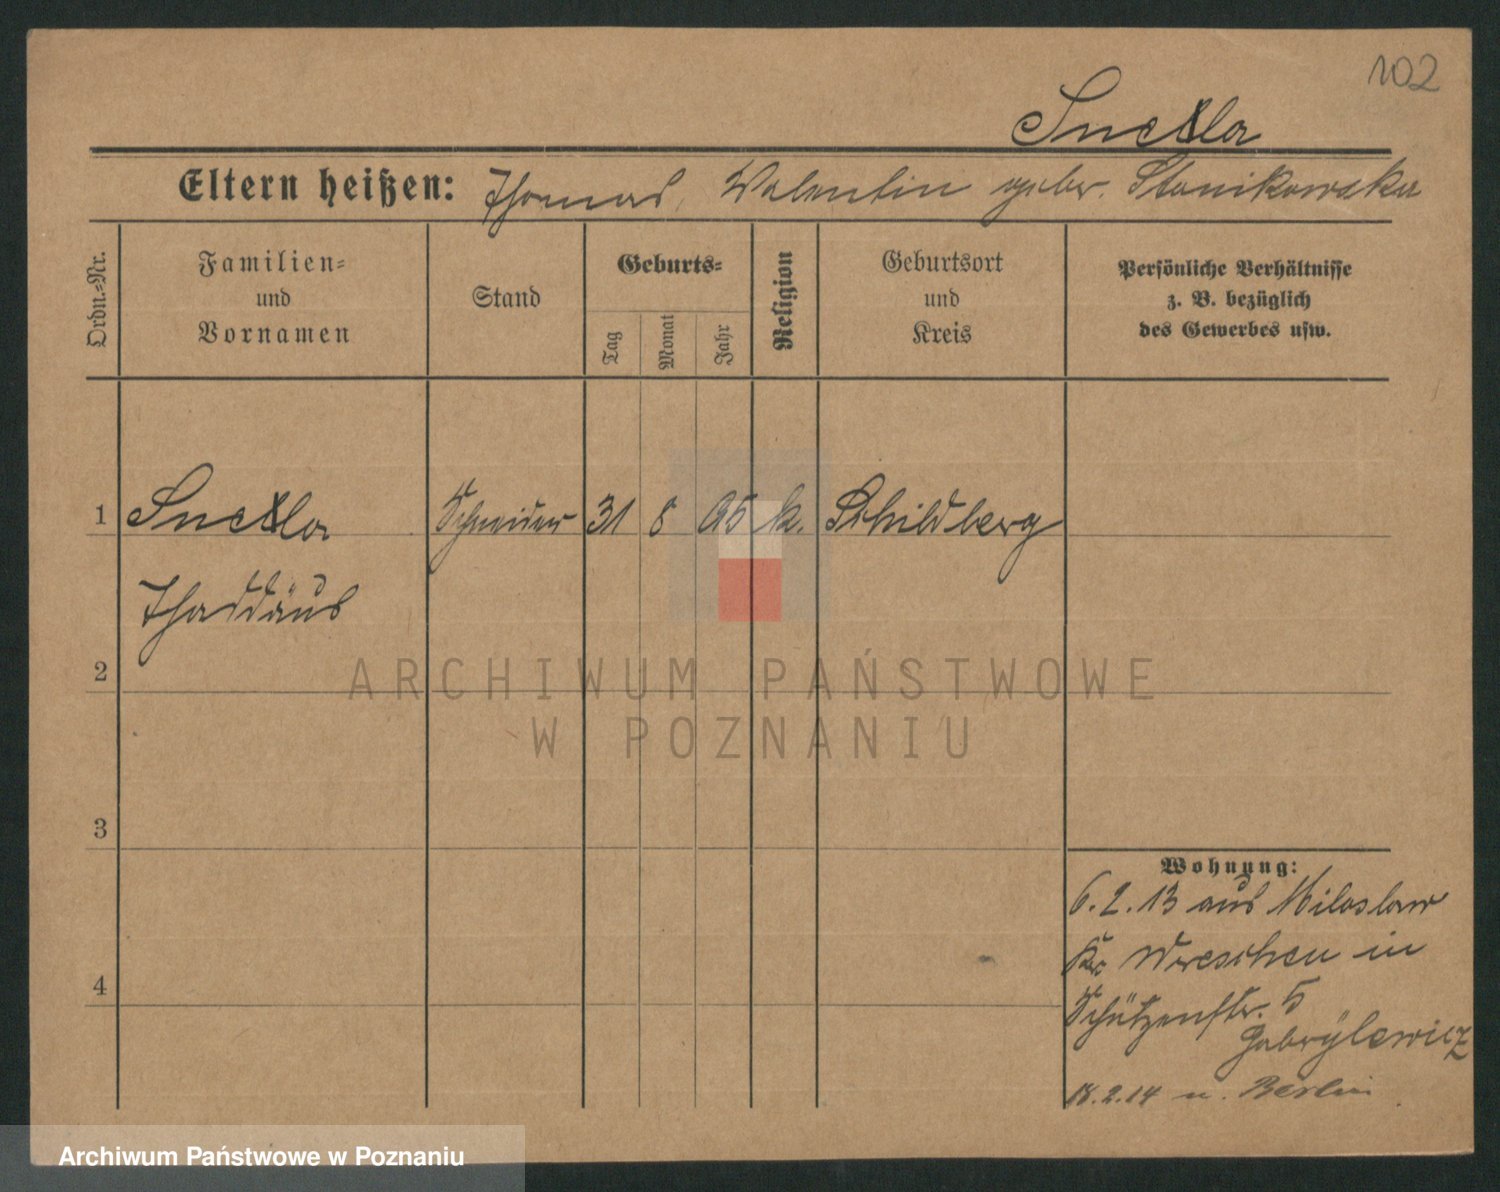 102
Snella
Eltern heißen: Thomas, Valentin gebr. Stanikowska
Ordn.-Nr.
Familien-
und
Vornamen
Stand
Geburts-
Tag
Monat
Jahr
Religion
Geburtsort
und
Kreis
Persönliche Verhältnisse
z. B. bezüglich
des Gewerbes usw.
1 Schneider 31 8 95 k. Schildberg
Thaddäus
2
3
4
Wohnung:
6.2.13 aus Miloslaw
Kr. Wreschen in
Schützenstr. 5
Gabrylewicz
18.2.14 n. Berlin
ARCHIWUM PAŃSTWOWE
W POZNANIU
Archiwum Państwowe w Poznaniu